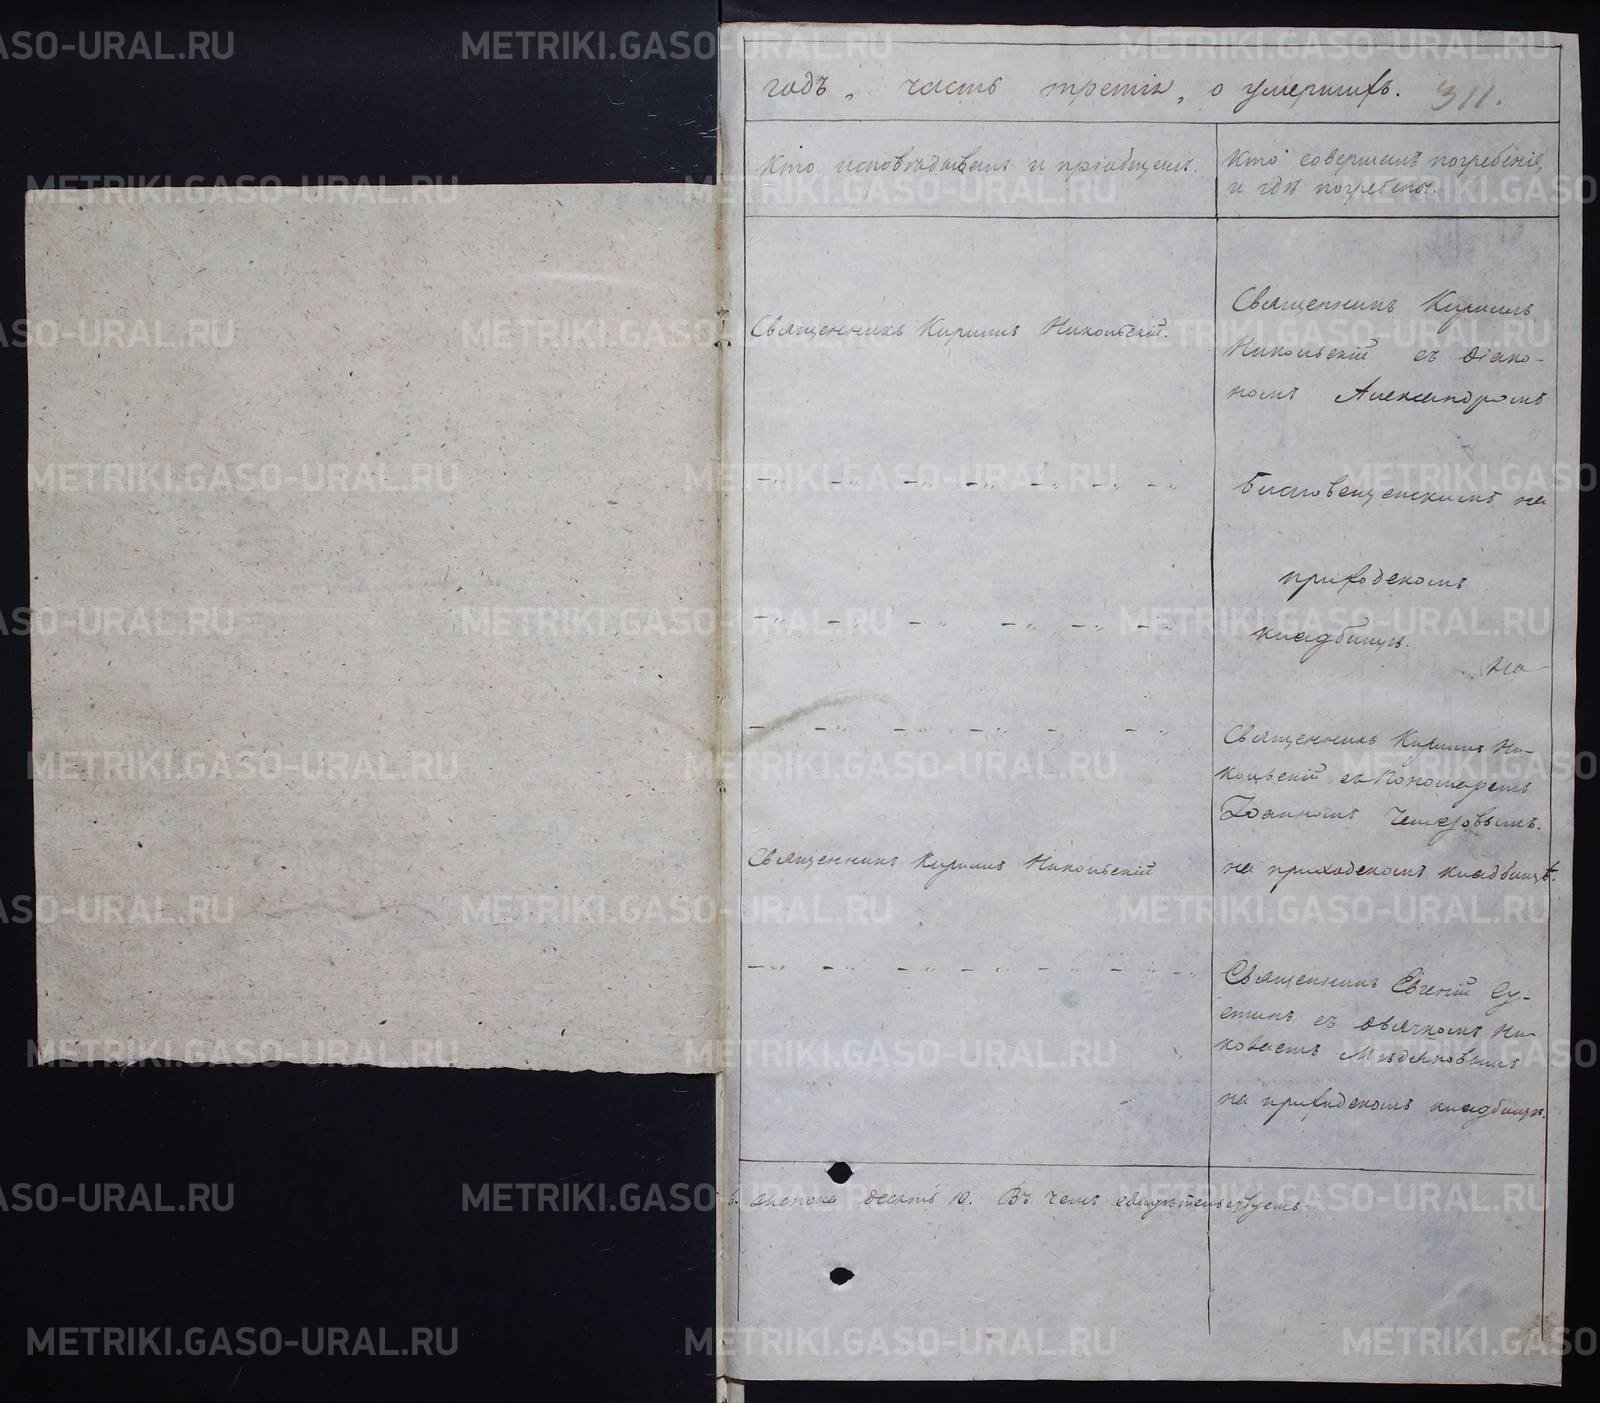 годъ, часть третія, о умершихъ. 311.
Кто исповѣдывалъ и пріобщалъ.
Кто совершалъ погребеніе,
и гдѣ погребены.
Священникъ Кириллъ Никольскій.
Священникъ Кириллъ
Никольскій съ діако-
номъ Александромъ
Благовѣщенскимъ на
приходскомъ
кладбищѣ.
На
Священникъ Кириллъ Ни-
кольскій съ Пономаремъ
Іоанномъ
на приходскомъ кладбищѣ.
Священникъ Кириллъ Никольскій
Священникъ Евгеній Су-
етинъ съ дьячкомъ Ни-
колаемъ
на приходскомъ кладбищѣ.
женска десять 10. Въ чемъ свидѣтельствуемъ.
METRIKI.GASO-URAL.RU